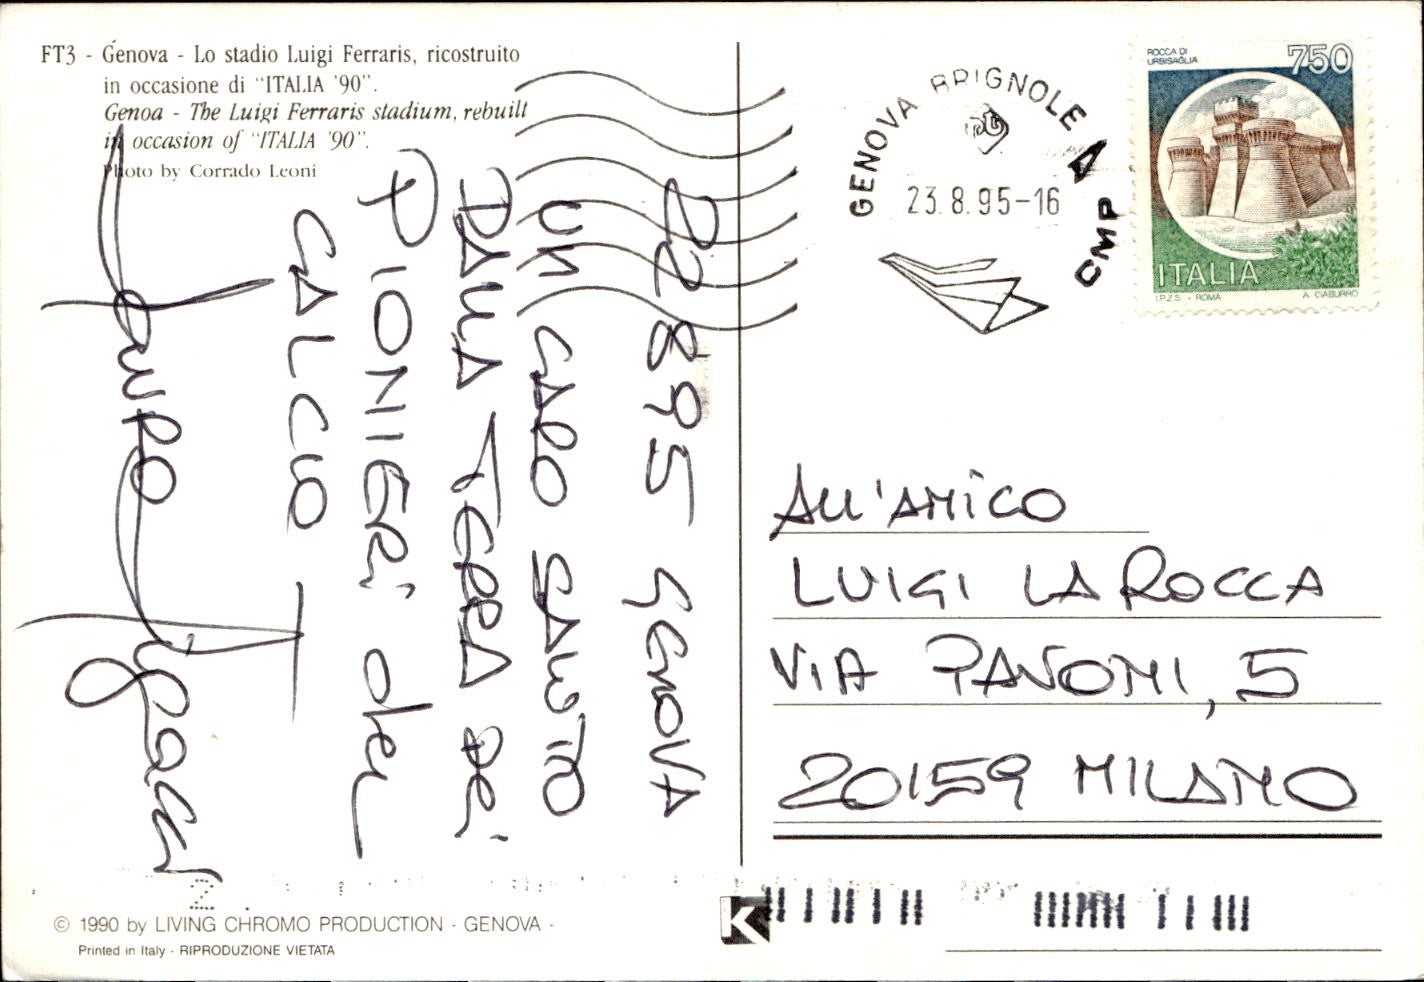 FT3 - Genova - Lo stadio Luigi Ferraris, ricostruito
in occasione di "ITALIA '90".
Genoa - The Luigi Ferraris stadium, rebuilt
in occasion of "ITALIA '90".
Photo by Corrado Leoni
22 8 95 GENOVA
UN CARO SALUTO
DALLA TERRA DEI
PIONIERI del
CALCIO
GENOVA BRIGNOLE A
CMP
23.8.95-16
ROCCA DI
URBISAGLIA
750
ITALIA
I.P.Z.S. - ROMA
A. CIABURRO
ALL'AMICO
LUIGI LA ROCCA
VIA PAVONI, 5
20159 MILANO
© 1990 by LIVING CHROMO PRODUCTION - GENOVA -
Printed in Italy - RIPRODUZIONE VIETATA
K